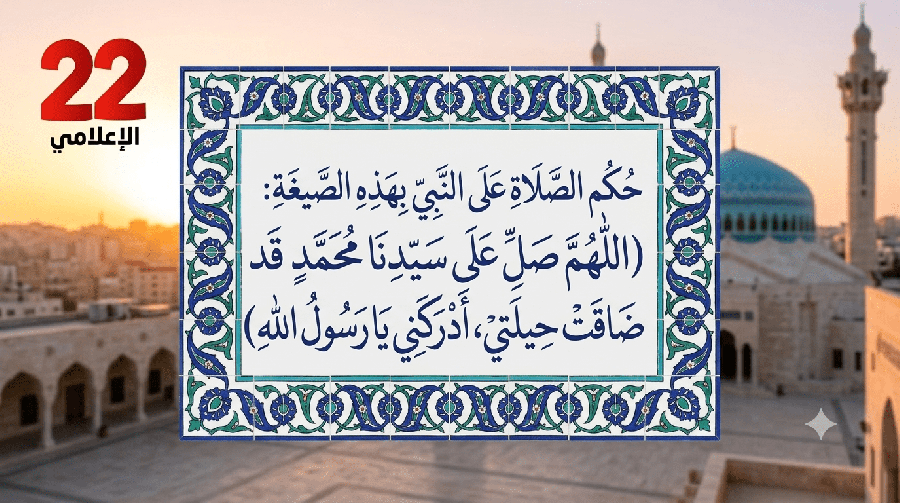 22
الإعلامي
حُكْم الصَّلَاةِ عَلَى النَّبِيّ بِهَذِهِ الصَّيغَةِ:
(اللَّهُمَّ صَلِّ عَلَى سَيّدِنَا مُحَمَّدٍ قَد
ضَاقَتْ حِيلَتيْ، أَدْرَكَنِي يَا رَسُولُ اللهِ)